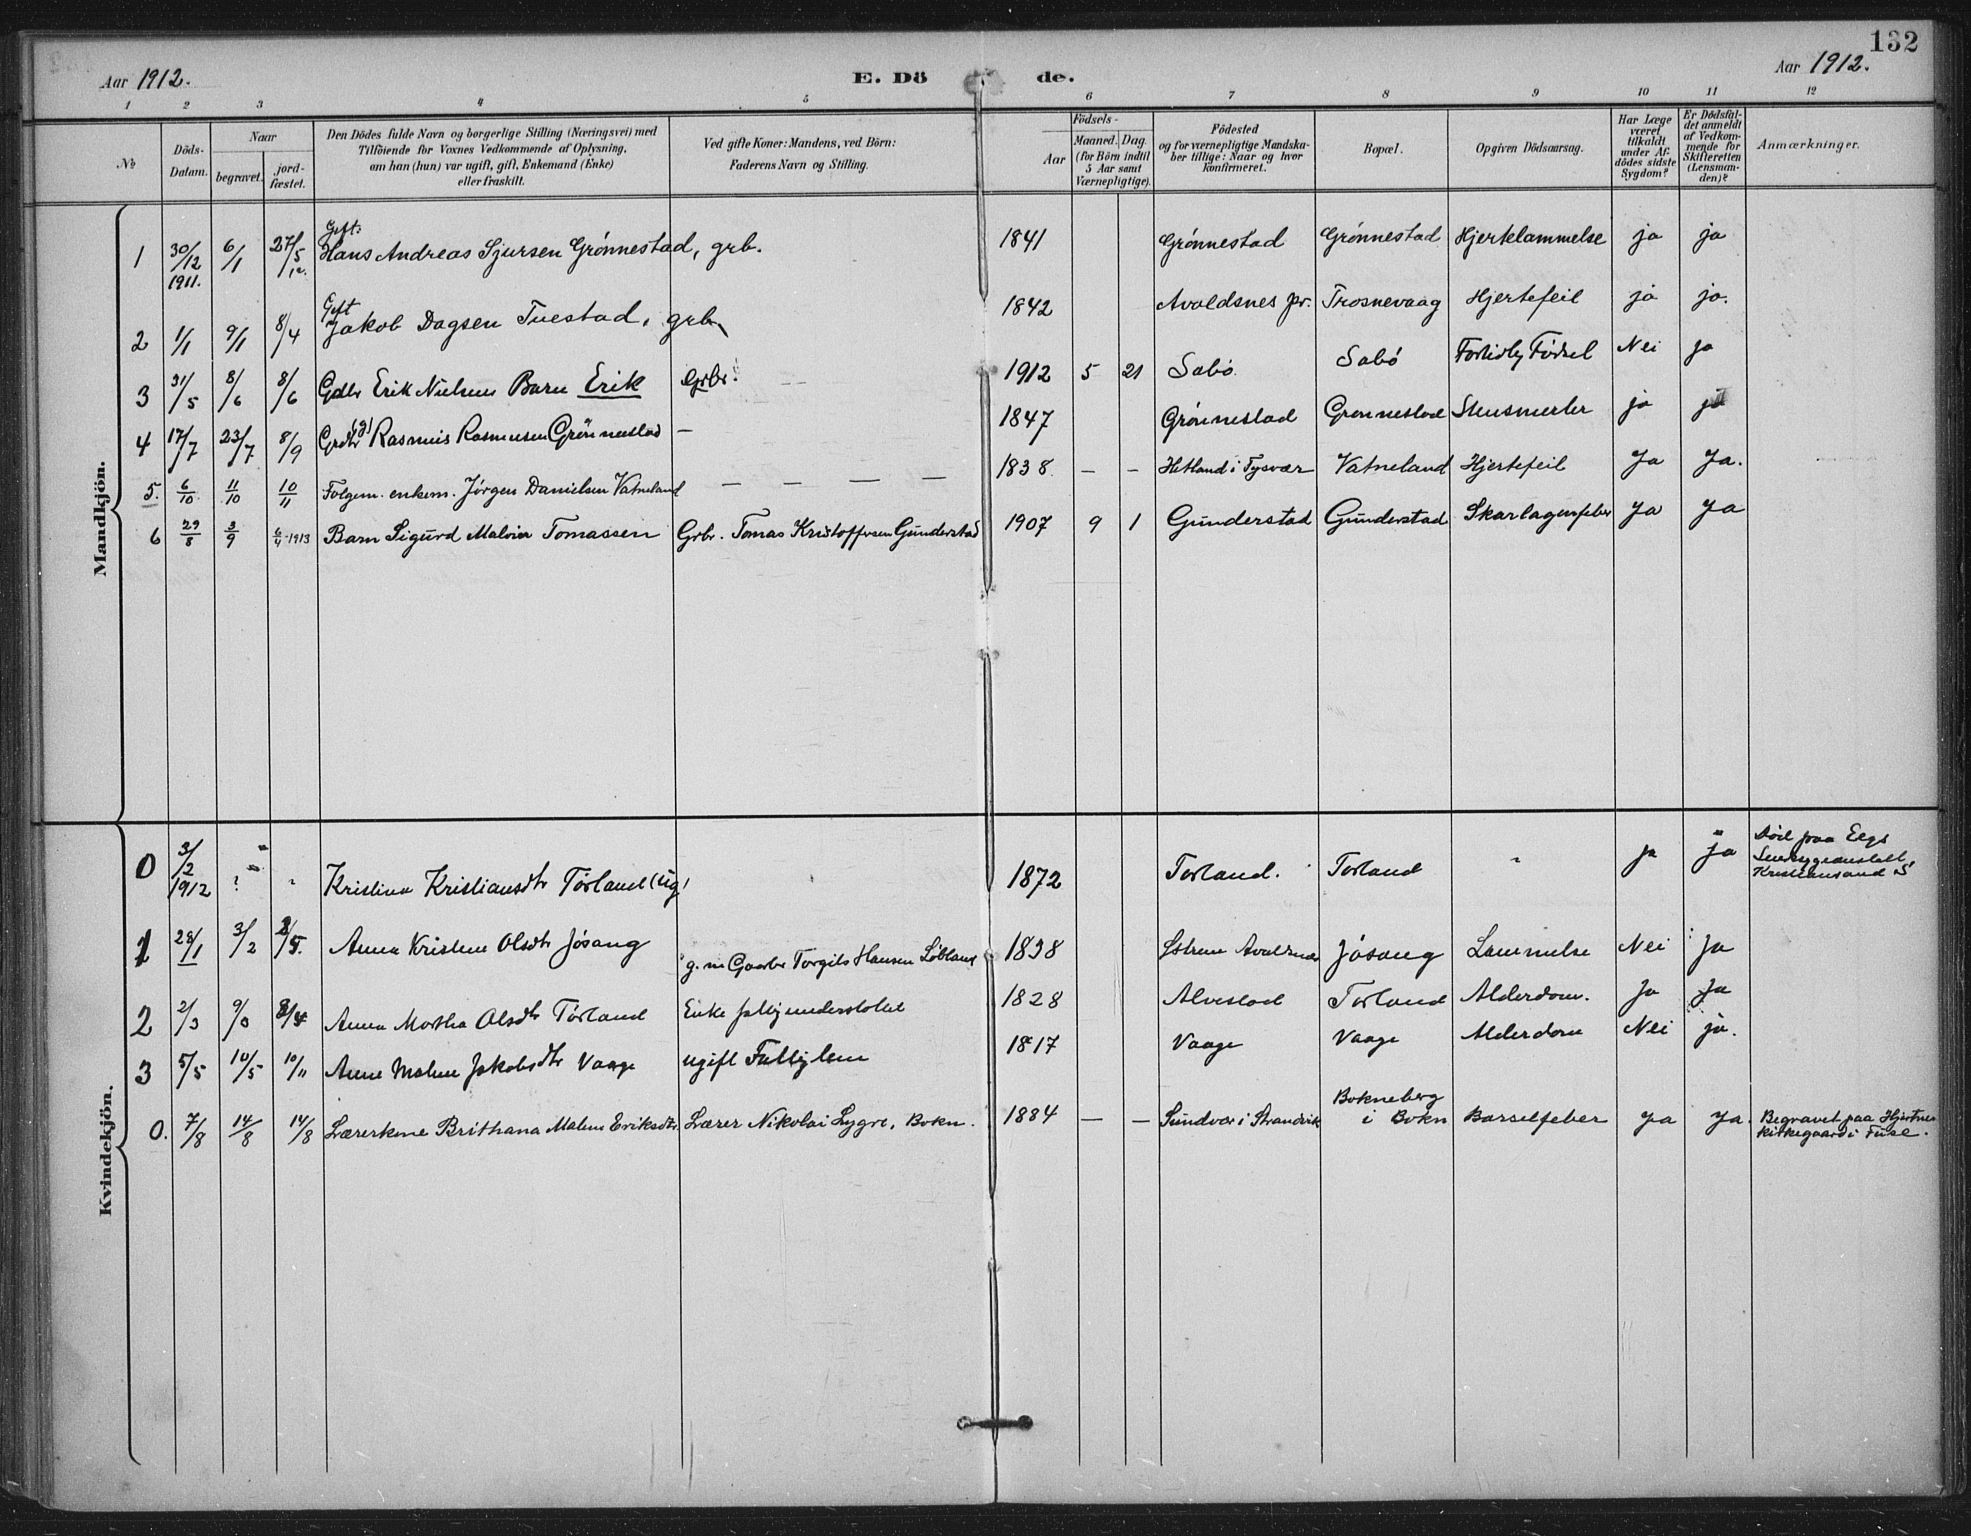 132
Aar 1912.
E. Dö de.
Aar 1912.
1 2 3 4 5 6 7 8 9 10 11 12
No
Döds-
Datum.
Naar
begravet.
jord-
fæstet.
Den Dödes fulde Navn og borgerlige Stilling (Næringsvei) med
Tilföiende for Voxnes Vedkommende af Oplysning,
om han (hun) var ugift, gift, Enkemand (Enke)
eller fraskilt.
Ved gifte Koner: Mandens, ved Börn:
Faderens Navn og Stilling.
Födsels-
Aar
Maaned. Dag.
(for Börn indtil
5 Aar samt
Værnepligtige).
Födested
og for værnepligtige Mandska-
ber tillige: Naar og hvor
konfirmeret.
Bopæl.
Opgiven Dödsaarsag.
Har Læge
været
tilkaldt
under Af-
dödes sidste
Sygdom?
Er Dödsfal-
det anmeldt
af Vedkom-
mende for
Skifteretten
(Lensman-
den)?
Anmærkninger.
Mandkjön.
1 30/12 1911. 6/1 27/5 12. Gift: Hans Andreas Sjursen Grönnestad, grb. 1841 Grönnestad Grönnestad Hjertelammelse ja ja
2 1/1 9/1 8/4 Gift Jakob Dagsen Tuestad, grb. 1842 Avaldsnes pr. Trosnevaag Hjertefeil ja ja.
3 31/5 8/6 8/6 Gdbr Erik Nielsens Barn Erik Grbr. — 1912 5 21 Sabö Sabö Fortidlig Födsel Nei ja
4 17/7 23/7 8/9 Grdbr (g) Rasmus Rasmussen Grönnestad — 1847 Grönnestad Grönnestad ja ja
5. 6/10 11/10 10/11 Folgem. enkem. Jörgen Danielsen Vatneland — — — — 1838 — — Hetland i Tysvær Vatneland Hjertefeil Ja Ja.
6 29/8 3/9 6/4-1913 Barn Sigurd Malvin Tomassen Grbr. Tomas Kristoffersen Gunderstad 1907 9 1 Gunderstad Gunderstad Skarlagensfeber Ja Ja
Kvindekjön.
0 3/2 1912 " " Kristina Kristiansdtr Törland (ug) 1872 Torland. Torland " ja ja Död paa Eegs
Sindsygeanstalt,
Kristiansand S
1 28/1 3/2 /5. Anna Kristine Olsdtr Jösang g. m Gaarbr Torgils Hansen 1838 Avaldsnes Jösang Lammelse Nei Ja
2 2/3 9/3 8/4 Anna Martha Olsdtr Törland Enke fattigunderstöttet 1828 Alvestad Torland Alderdom. Ja Ja
3 5/5 10/5 10/11 Anne Malene Jakobsdtr Vaage ugift Fattiglem 1817 Vaage Vaage Alderdom Nei ja.
0. 7/8 14/8 14/8 Lærerkone Brithana Malene Eriksdtr. Lærer Nikolai Lygre, Bokn. 1884 — — Sundvor i Strandvik Bokneberg
i Bokn Barselfeber ja Ja. Begravet paa
kirkegaard i Fuse.